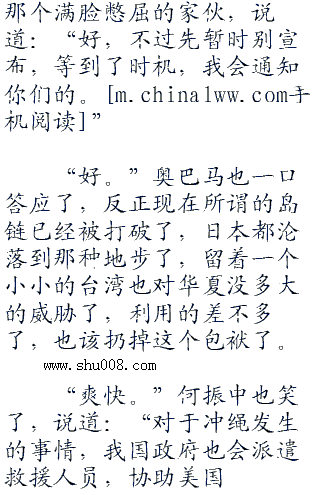 那个满脸憋屈的家伙，说
道：“好，不过先暂时别宣
布，等到了时机，我会通知
你们的。[m.china1ww.com手
机阅读]”
“好。”奥巴马也一口
答应了，反正现在所谓的岛
链已经被打破了，日本都沦
落到那种地步了，留着一个
小小的台湾也对华夏没多大
的威胁了，利用的差不多
了，也该扔掉这个包袱了。
www.shu008.com
“爽快。”何振中也笑
了，说道：“对于冲绳发生
的事情，我国政府也会派遣
救援人员，协助美国